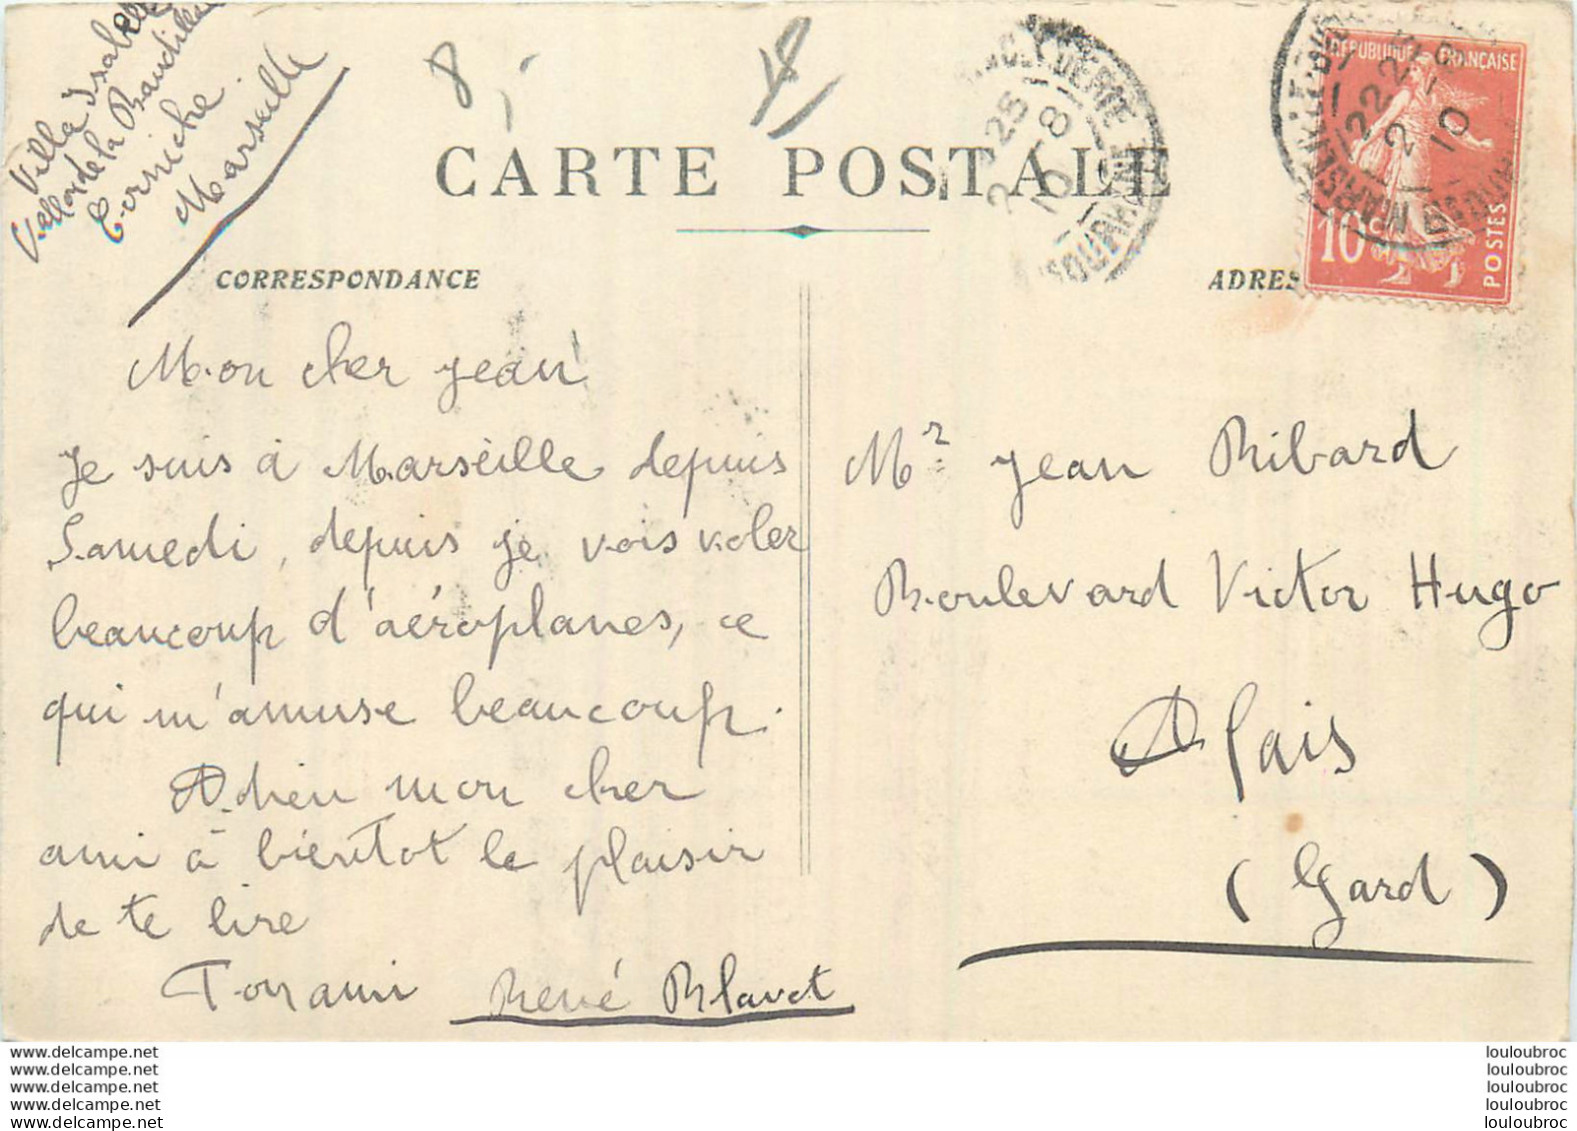 Villa Isabelle
Vallon de la Baudille
Corniche
Marseille
CARTE POSTALE
RÉPUBLIQUE FRANÇAISE
10c
POSTES
CORRESPONDANCE
ADRES
Mon cher Jean
Je suis à Marseille depuis
Samedi, depuis je vois voler
beaucoup d'aéroplanes, ce
qui m'amuse beaucoup.
Adieu mon cher
ami à bientot le plaisir
de te lire
Ton ami René Blavet
Mr Jean Ribard
Boulevard Victor Hugo
Alais
(Gard)
www.delcampe.net
www.delcampe.net
www.delcampe.net
www.delcampe.net
www.delcampe.net
louloubroc
louloubroc
louloubroc
louloubroc
louloubroc